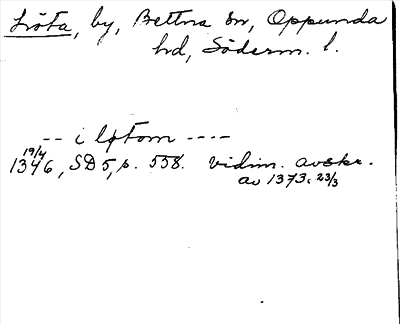 Löta, by, Bettna sn, Oppunda
hd, Söderm. l.
-- iløtom ----
19/4
1346, SD 5, s. 558. vidim. avskr.
av 1373. 23/3